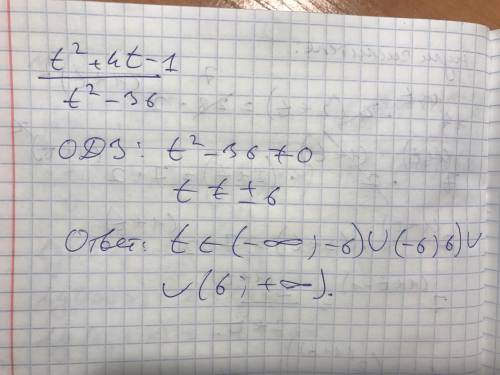 t² + 4t - 1
t² - 36
ОДЗ: t² - 36 ≠ 0
t ≠ ± 6
Ответ: t ∈ (-∞; -6) ∪ (-6; 6) ∪
∪ (6; +∞).